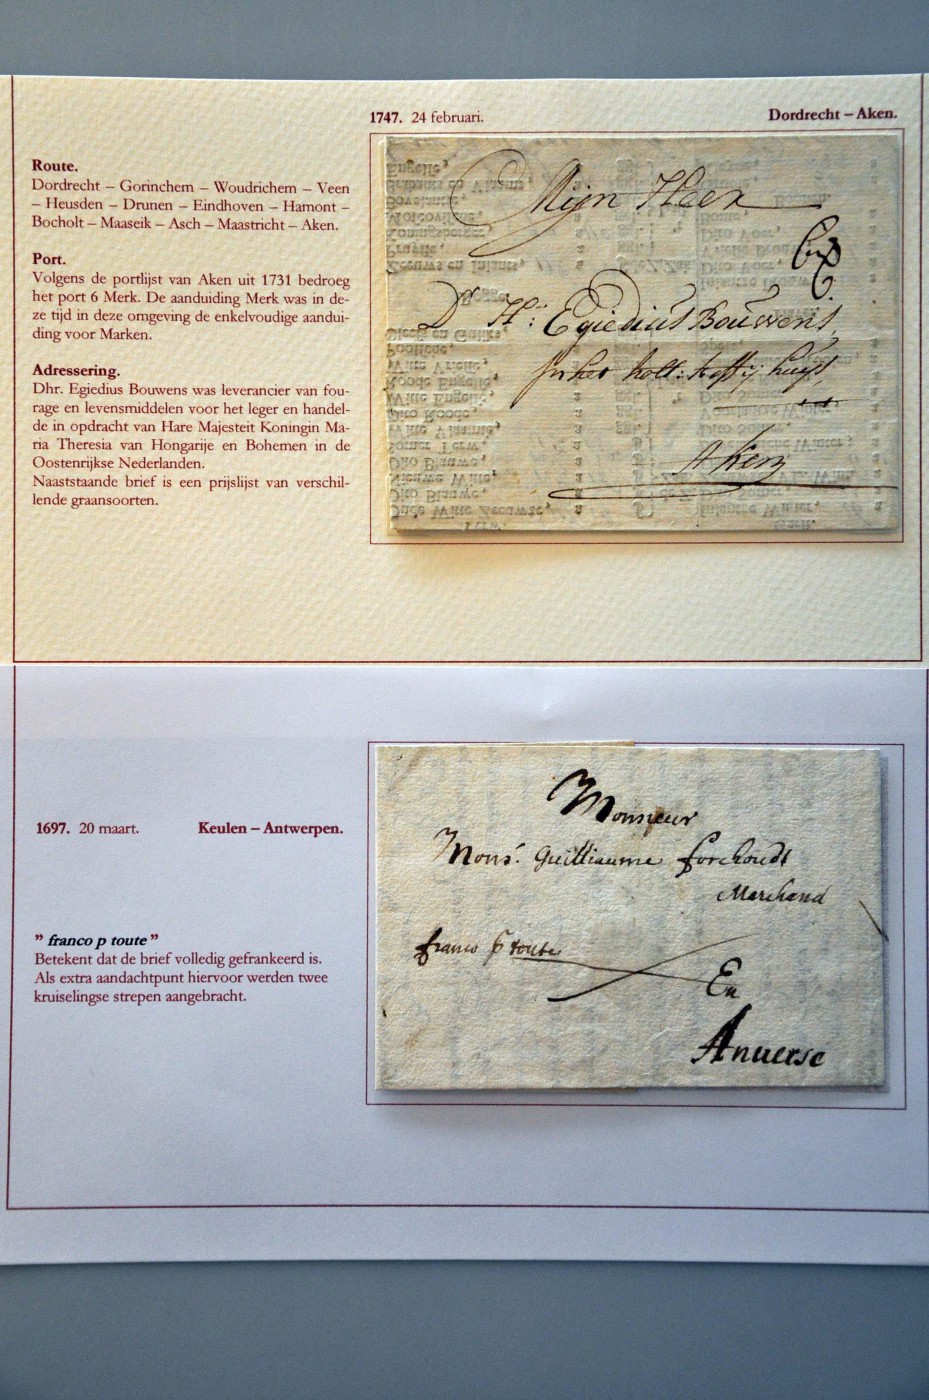 1747. 24 februari.
Dordrecht – Aken.
Route.
Dordrecht – Gorinchem – Woudrichem – Veen
– Heusden – Drunen – Eindhoven – Hamont –
Bocholt – Maaseik – Asch – Maastricht – Aken.
Port.
Volgens de portlijst van Aken uit 1731 bedroeg
het port 6 Merk. De aanduiding Merk was in de-
ze tijd in deze omgeving de enkelvoudige aandui-
ding voor Marken.
Adressering.
Dhr. Egiedius Bouwens was leverancier van fou-
rage en levensmiddelen voor het leger en handel-
de in opdracht van Hare Majesteit Koningin Ma-
ria Theresia van Hongarije en Bohemen in de
Oostenrijkse Nederlanden.
Naaststaande brief is een prijslijst van verschil-
lende graansoorten.
Mijn Heer
Dr Hr: Egiedius Bouwens
Aken
1697. 20 maart.
Keulen – Antwerpen.
” franco p toute ”
Betekent dat de brief volledig gefrankeerd is.
Als extra aandachtpunt hiervoor werden twee
kruiselingse strepen aangebracht.
Monsieur
Monsr. Guilliaume forchoudt
Marchand
franco p toute
En
Anuerse